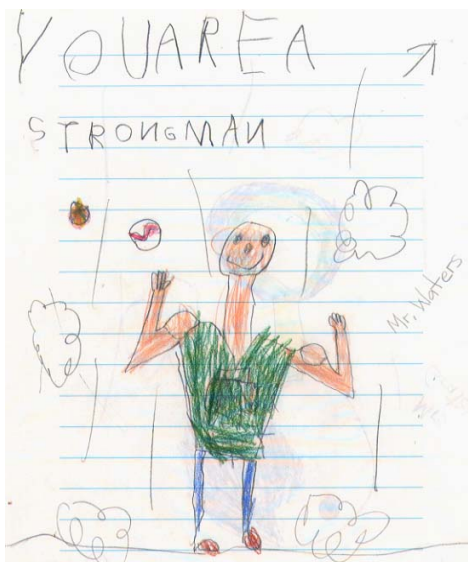 YOU ARE A
STRONGMAN
Mr. Waters